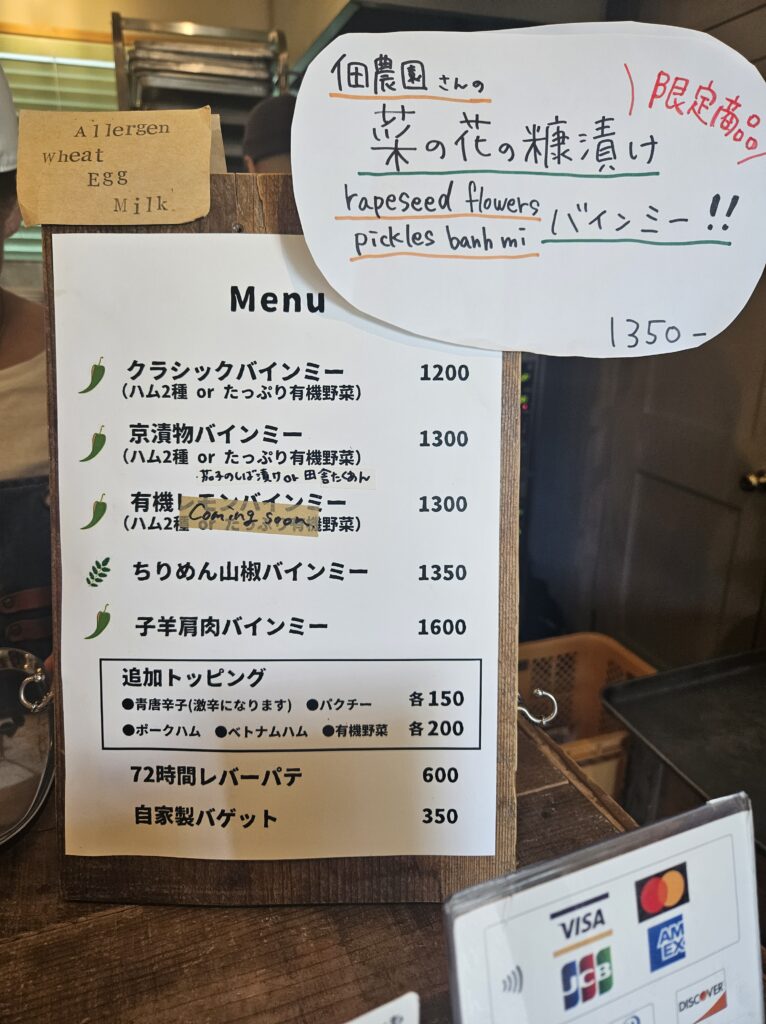 Allergen
Wheat
Egg
Milk
佃農園さんの
限定商品
菜の花の糠漬け
rapeseed flowers
pickles banh mi バインミー!!
1350-
Menu
クラシックバインミー 1200
(ハム2種 or たっぷり有機野菜)
京漬物バインミー 1300
(ハム2種 or たっぷり有機野菜)
茄子のしば漬け or 田舎たくあん
有機レモンバインミー 1300
(ハム2種 or たっぷり有機野菜)
Coming soon
ちりめん山椒バインミー 1350
子羊肩肉バインミー 1600
追加トッピング
●青唐辛子(激辛になります) ●パクチー 各150
●ポークハム ●ベトナムハム ●有機野菜 各200
72時間レバーパテ 600
自家製バゲット 350
VISA
JCB
AMEX
DISCOVER